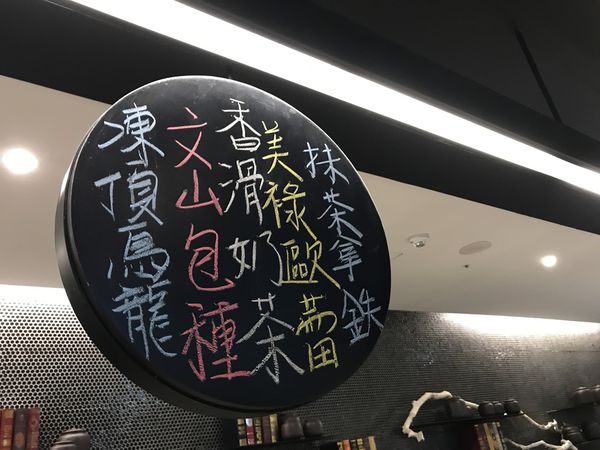 抹茶拿鉄
美祿歐蕾
香滑奶茶
文山包種
凍頂烏龍